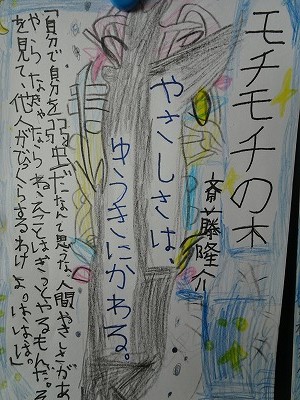 モチモチの木
斎藤隆介
やさしさは、
ゆうきにかわる。
「自分で自分を弱虫だなんて思うな、人間やさしさがあ
やらなきゃならねえことはきっとやるもんだ。そ
を見て、他人がびっくらするわけよ。ははは。」